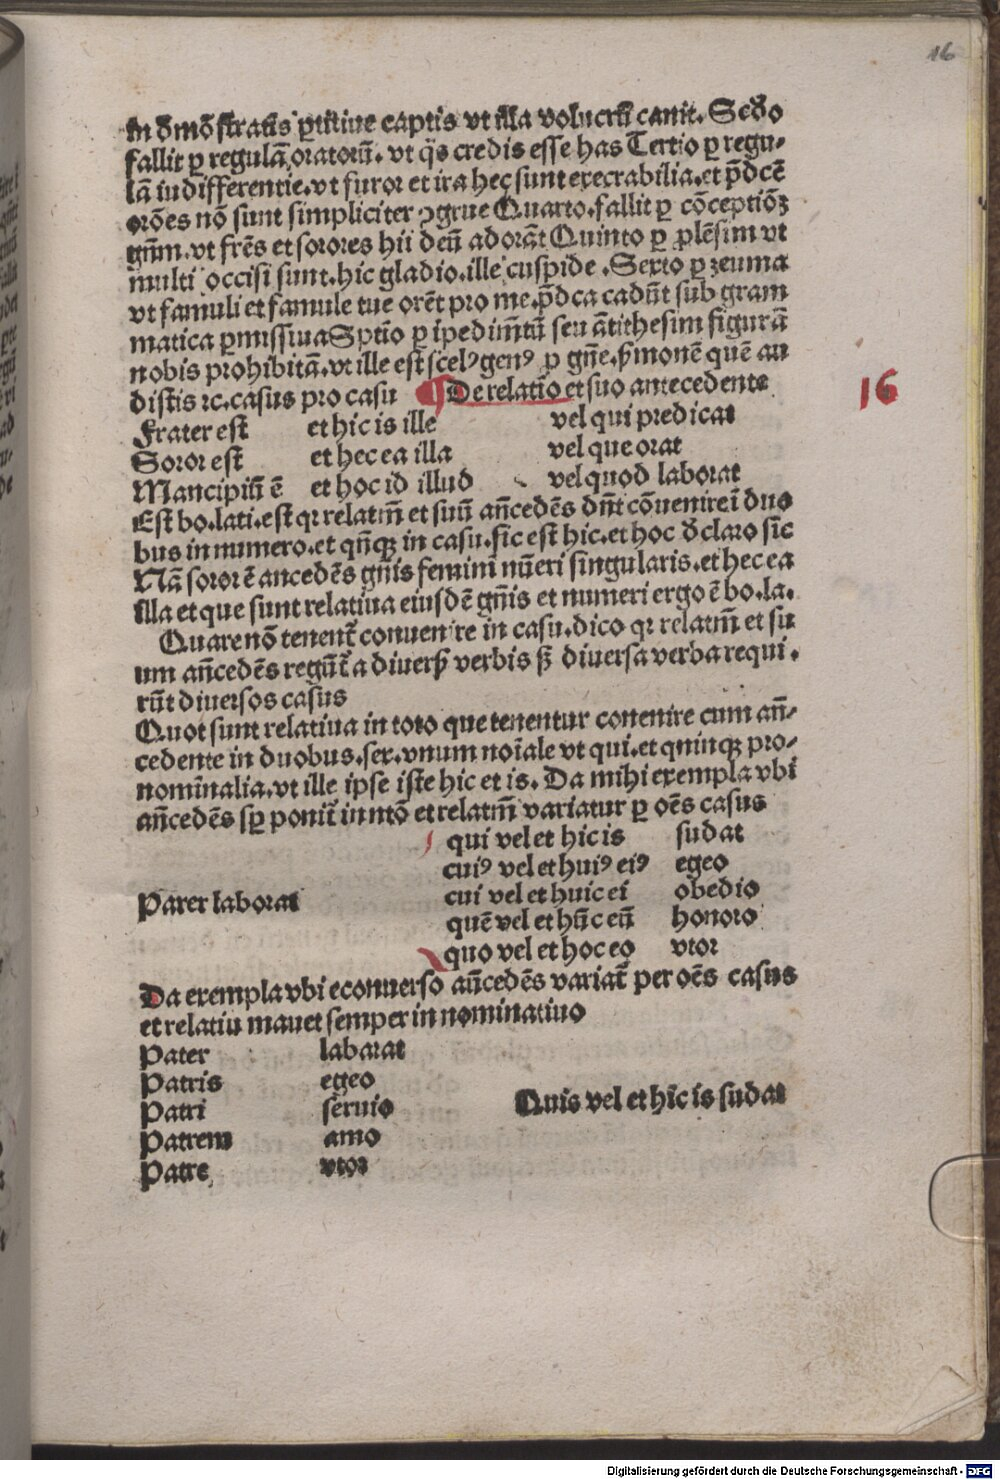 16
in dmōstratis ꝑtitiue captis vt illa volucrū canit. Secdo
fallit ꝑ regulā oratoriū. vt qͥs credis esse has Tertio ꝑ regu-
lā indifferentie. vt furor et ira hec sunt execrabilia. et p̄dcē
orōes nō sunt simpliciter ꝯgrue Quarto. fallit ꝑ cōceptiōꝫ
gn̄m. vt frēs et sorores hii deū adorāt Quinto ꝑ ꝓlēsim vt
multi occisi sunt. hic gladio. ille cuspide. Sexto ꝑ zeuma
vt famuli et famule tue orēt pro me. p̄dca cadūt sub gram
matica ꝑmissiua Sptīo ꝑ ipedimētū seu ātithesim figurā
nobis prohibitā. vt ille est scelꝰ genꝰ ꝑ gn̄e. ẜmonē quē au
distis ⁊c. casus pro casu ¶ De relatīo et suo antecedente
16
Frater est et hic is ille vel qui predicat
Soror est et hec ea illa vel que orat
Mancipiū ē et hoc id illud vel quod laborat
Est bo. lati. est qꝛ relatm̄ et suū an̄cedēs dn̄t cōuenire ī duo
bus in numero. et qn̄qꝫ in casu. sic est hic. et hoc dclaro sic
Nā soror ē ancedēs gn̄is feminī nūeri singularis. et hec ea
illa et que sunt relatiua eiusdē gn̄is et numeri ergo ē bo. la.
Quare nō tenent̄ conuenire in casu. dico qꝛ relatm̄ et su
um an̄cedēs regūt̄ a diuersꝭ verbis sꝫ diuersa verba requi.
rūt diuersos casus
Quot sunt relatiua in toto que tenentur conenire cum an̄-
cedente in duobus. sex. vnum noīale vt qui. et qninqꝫ pro-
nomīnalia. vt ille ipse iste hic et is. Da mihi exempla vbi
an̄cedēs sꝑ ponit̄ in ntō et relatm̄ variatur ꝑ oēs casus
qui vel et hic is sudat
cuiꝰ vel et huiꝰ eiꝰ egeo
Pater laborat cui vel et huic ei obedio
quē vel et hūc eū honoro
quo vel et hoc eo vtor
Da exempla vbi econuerso an̄cedēs variat̄ per oēs casus
et relatiu manet semper in nominatiuo
Pater labarat
Patris egeo
Patri seruio Quis vel et hic is sudat
Patrem amo
Patre vtor
Digitalisierung gefördert durch die Deutsche Forschungsgemeinschaft - DFG